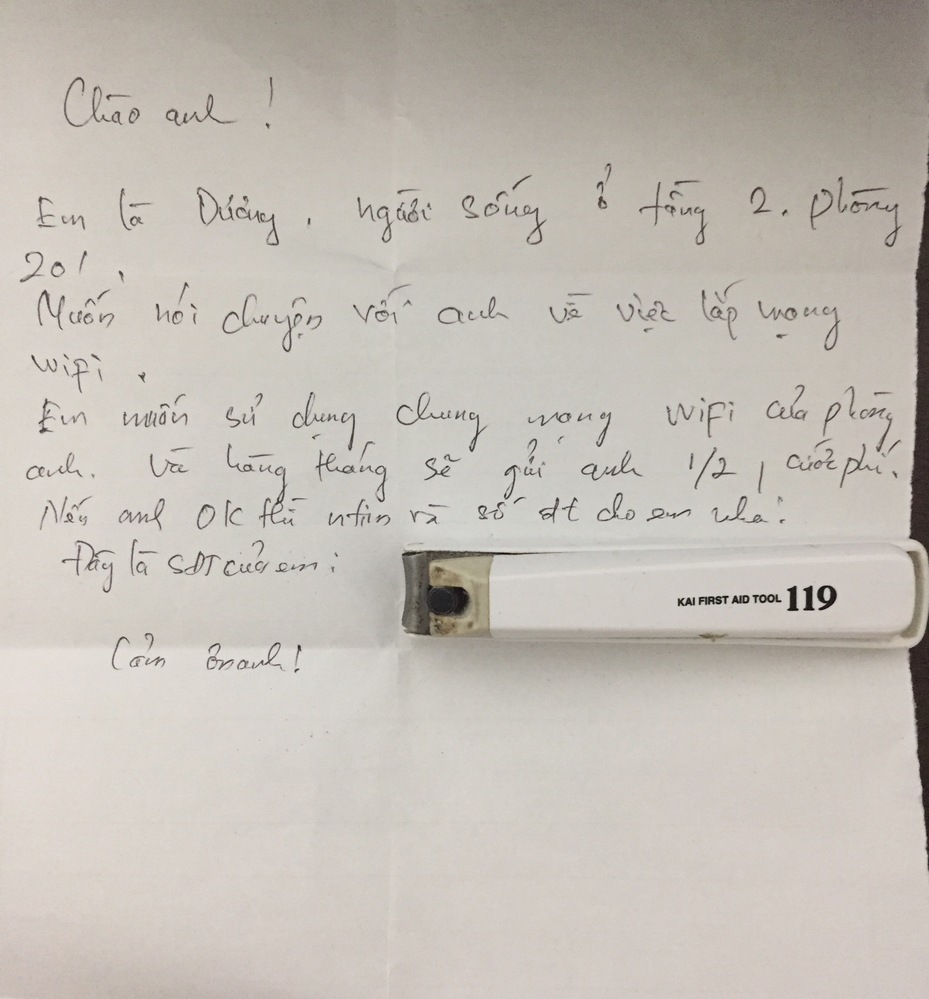 Chào anh !
Em là Dương, người sống ở tầng 2. phòng
201,
Muốn nói chuyện với anh về việc lắp mạng
wifi.
Em muốn sử dụng chung mạng wifi của phòng
anh. Và hàng tháng sẽ gửi anh 1/2, cước phí.
Nếu anh OK thì ntin và số đt cho em nha.
Đây là SĐT của em:
KAI FIRST AID TOOL 119
Cảm ơn anh!